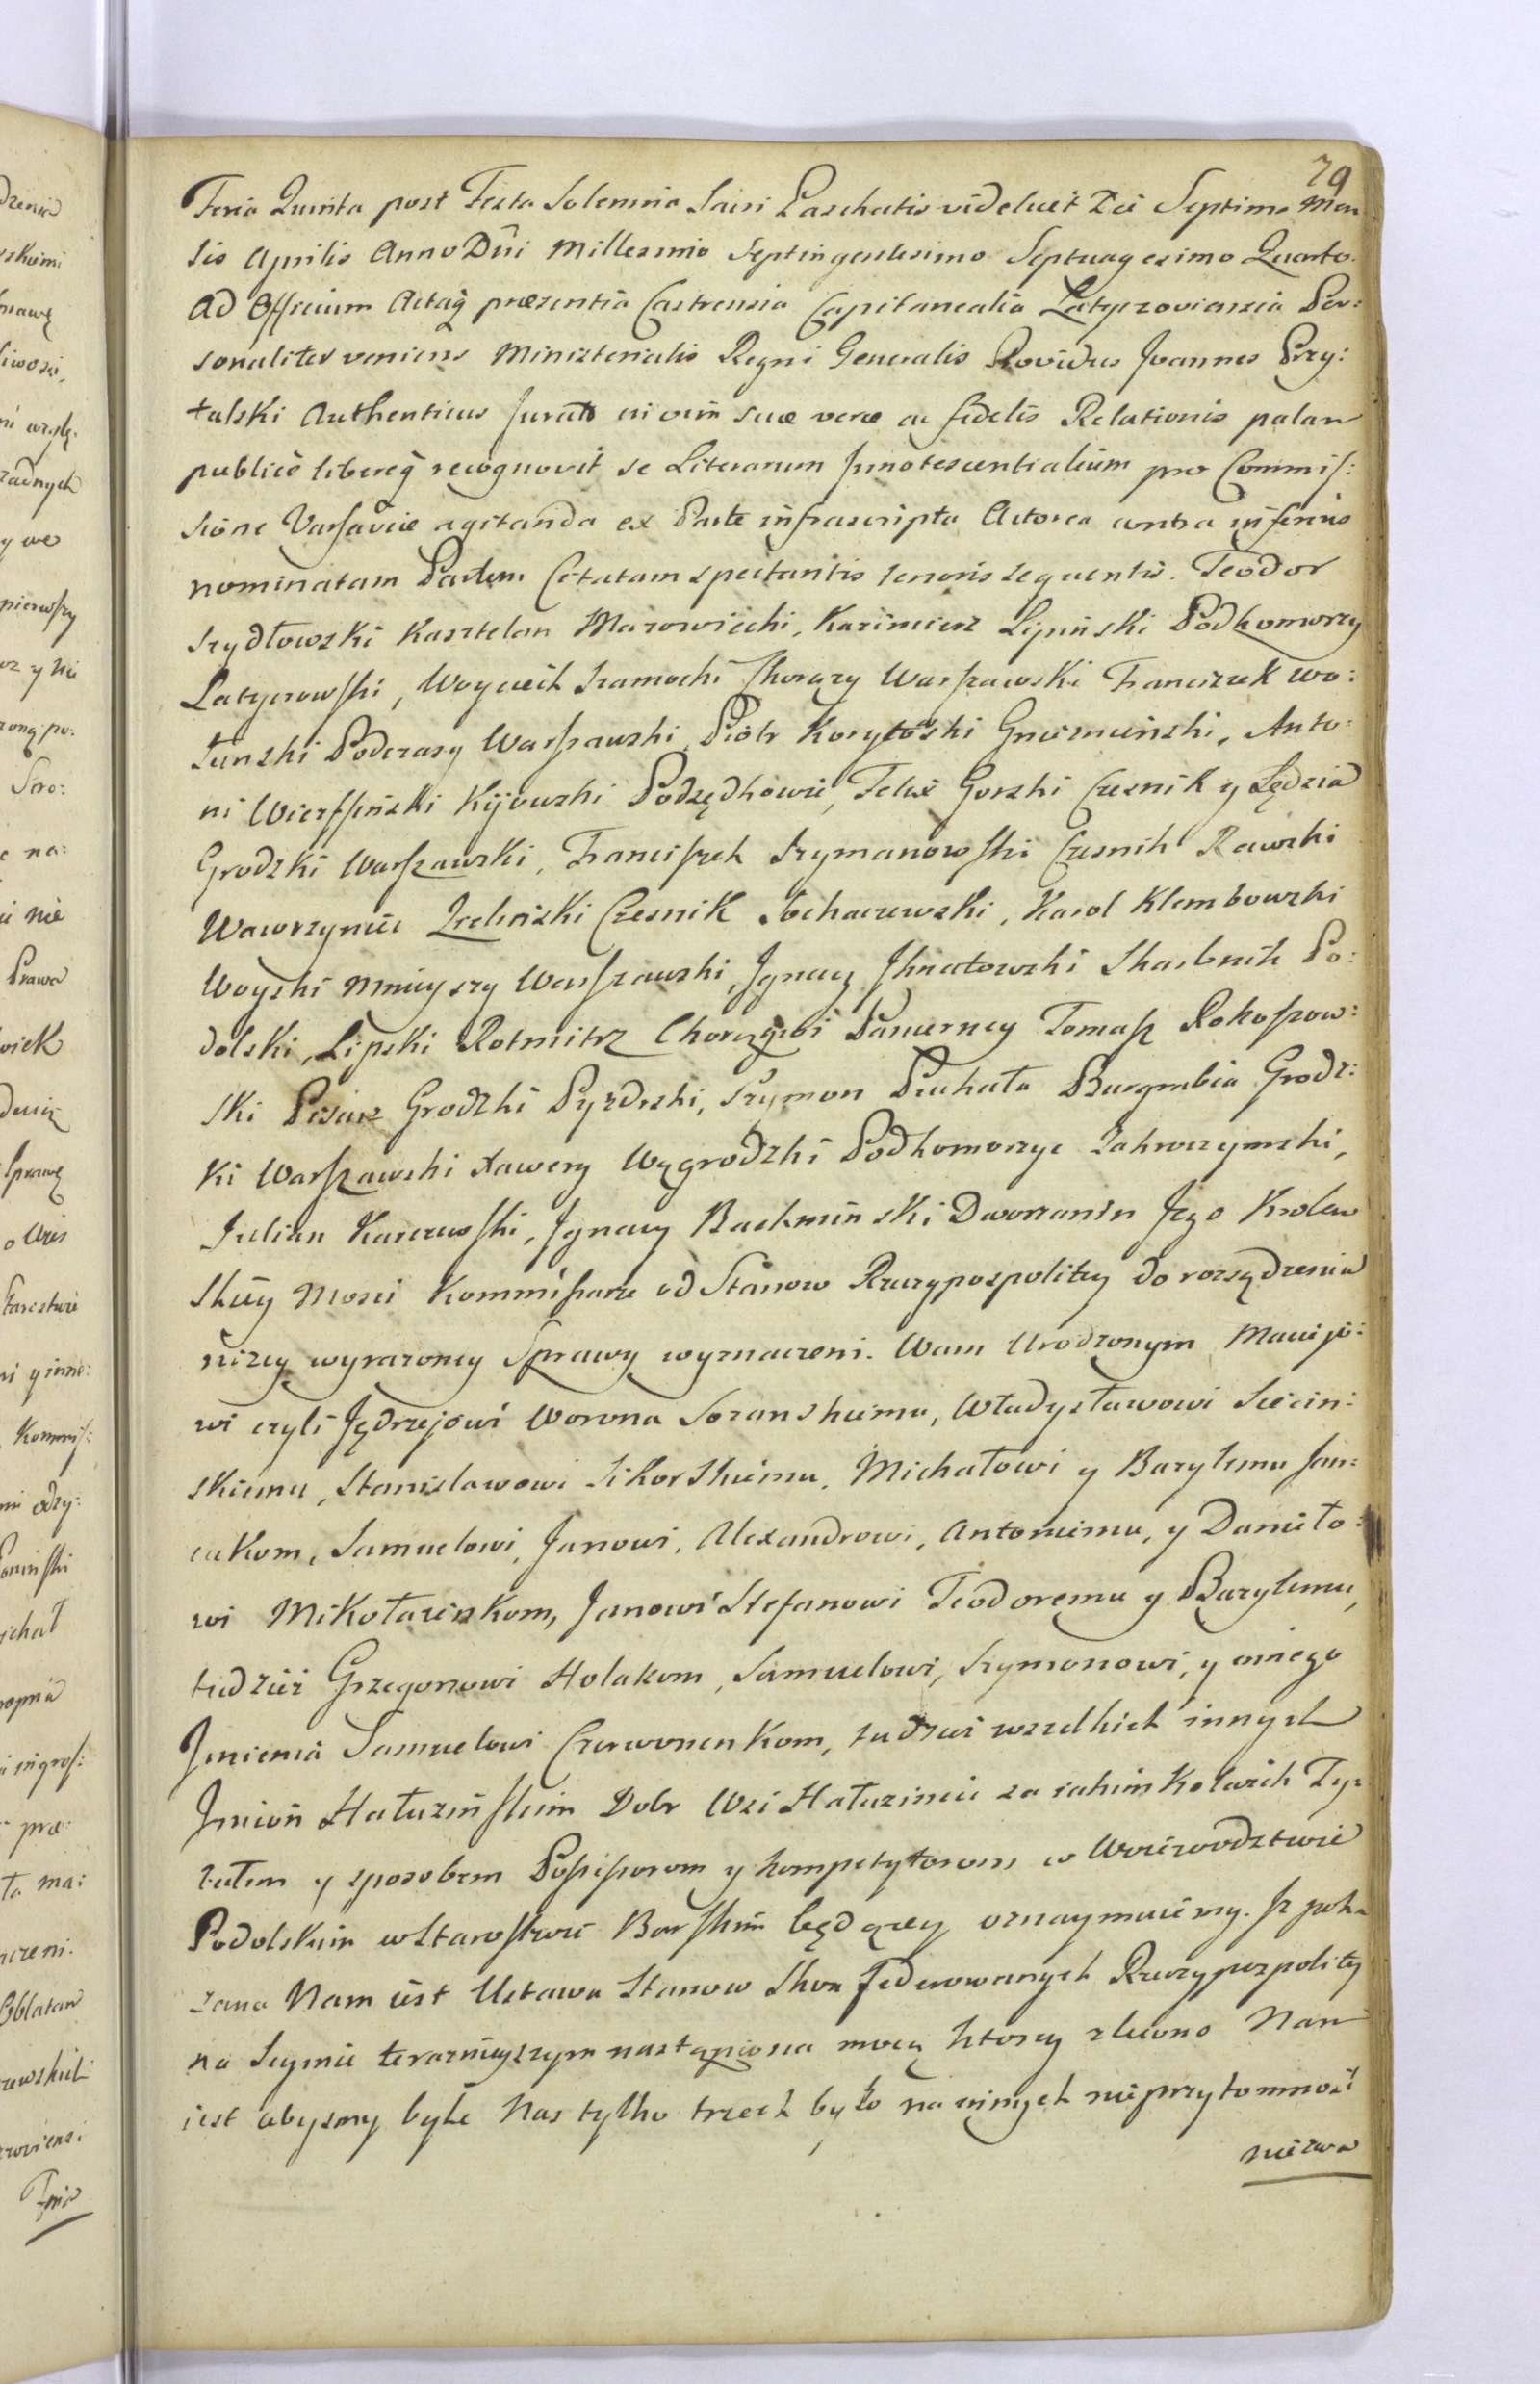 79
Feria Quinta post Festa Solennia Sacri Paschatis videlicet Die Septima Men
sis Aprilis Anno Dñi Millesimo Septingentesimo Septuagesimo Quarto.
Ad Officium Actaq̃ præsentia Castrensia Capitanealia Latyczoviensia Per:
sonaliter veniens Ministerialis Regni Generalis Providus Joannes Przy:
tulski Authenticus Juratus in vim suæ veræ ac fidelis Relationis palam
publice libereq̃ recognovit se Literarum Innotescentialium pro Commis:
sione Varsaviæ agitanda ex Parte infrascripta Actorea contra inferius
nominatam Partem Citatam spectantis tenoris sequentis. Teodor
Szydłowski Kasztelan Mazowiecki, Kazimierz Lipiński Podkomorzy
Latyczowski, Woyciech Szamocki Chorązy Warszawski Franciszek Wo:
łunski Podczaszy Warszawski, Piotr Korytoski Gnieznieński, Anto:
ni Wierssiński Kijowski Podsędkowie, Felix Gorski Czesnik y Sędzia
Grodzki Warszawski, Franciszek Szymanowski Czesnik Rawski
Wawrzyniec Zieliński Czesnik Sochaczewski, Karol Klembowski
Woyski Mnieyszy Warszawski, Jgnacy Jhnatowski Skarbnik Po:
dolski, Lipski Rotmitrz Chorągwi Pancerney Tomasz Rokoszow:
ski Pisarz Grodzki Pyzdrski, Szymon Piuhała Burgrabia Grodz:
ki Warszawski Xawery Wągrodzki Podkomorzyc Zakroczymski,
Julian Karczewski, Jgnacy Backmiński Dworzanin Jego Krolew
skiey Mosci Kommissarze od Stanow Rzeczypospolitey do rozsądzenia
nizey wyrazoney Sprawy wyznaczeni. Wam Urodzonym Maciejo:
wi czyli Jędrzejowi Worona Sozanskiemu, Władysławowi Siecin:
skiemu, Stanisławowi Sikorskiemu, Michałowi y Bazylemu Jan:
cakom, Samuelowi, Janowi, Alexandrowi, Antoniemu, y Daniło:
wi Mikołaienkom, Janowi Stefanowi Teodoremu y Bazylemu,
tudziez Grzegorzowi Holakom, Samuelowi, Szymonowi, y innego
Jmienia Samuelowi Czerwonenkom, tudziez wszelkich innych
Jmion Hałuzińskim Dobr Wsi Hałuziniec za iakimkolwiek Ty:
tułem y sposobem Possessorom y kompetytorom w Woiewodztwie
Podolskim w Starostwie Barskim będącey oznaymuiemy. Jz poka
zana Nam iest Ustawa Stanow Skonfederowanych Rzeczypospolitey
na Seymie teraznieyszym nastąpiona mocą ktorey zlecono Nam
iest abysmy byle Nas tylko trzech było na innych nieprzytomność
niezwa